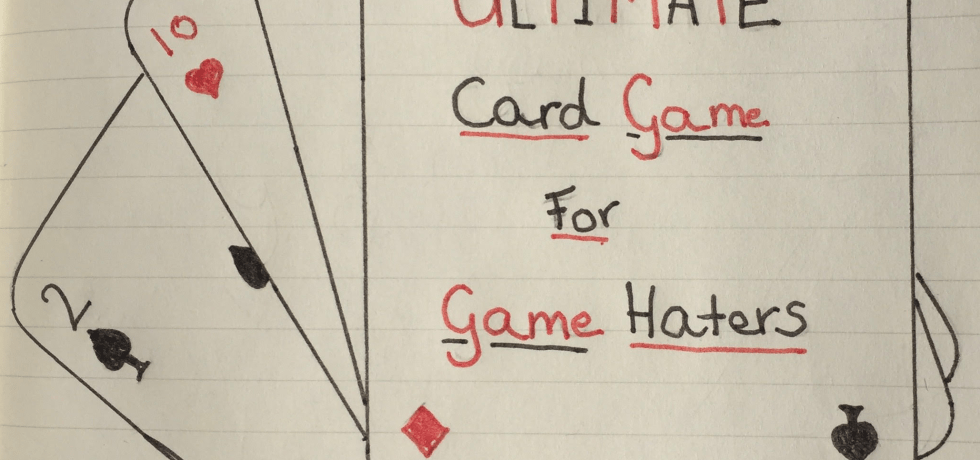 10
ULTIMATE
Card Game
For
Game Haters
2